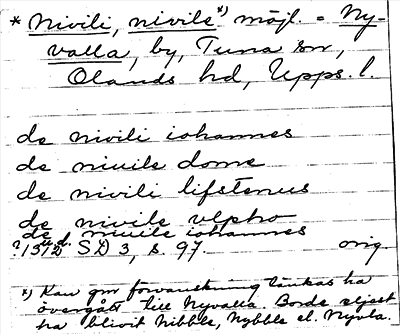 * Nivili, nivile *) möjl. = Ny-
valla, by, Tuna sn,
Olands hd, Upps. l.
de nivili iohannes
de niuile dome
de nivili lifstenus
de nivile vlpho
de niuile iohannes
?/5 1312 SD 3, s. 97. orig.
*) Kan gm förvanskning tänkas ha
övergått till Nyvalla. Borde eljest
ha blivit Nibble, Nybble el. Nyvla.